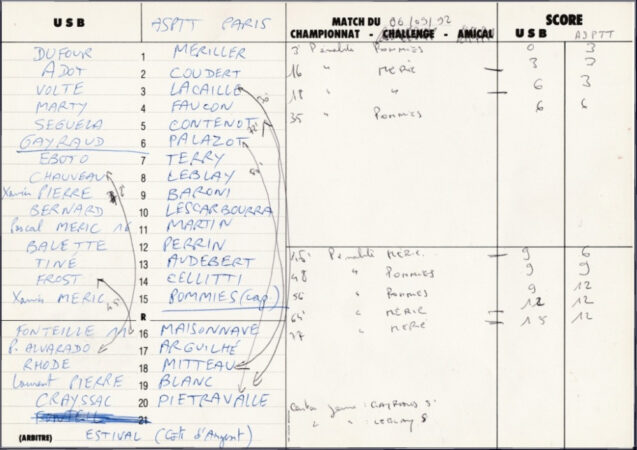 USB ASPTT PARIS MATCH DU 06/05/92 SCORE
CHAMPIONNAT - CHALLENGE - AMICAL USB ASPTT
DUFOUR 1 MERILLER 3' Pénalité POMMIES 0 3
ADOT 2 COUDERT 16 " MERIC 3 3
VOLTE 3 LACAILLE 18 " " 6 3
MARTY 4 FAUCON 35 " POMMIES 6 6
SEGUELA 5 CONTENOT
GAYRAUD 6 PALAZOT
EBOTO 7 TERRY
CHAUVEAU 8 LEBLAY
Xavier PIERRE 9 BARONI
BERNARD 10 LESCARBOURRA
Pascal MERIC 11 MARTIN
BALETTE 12 PERRIN 45' Pénalité MERIC 9 6
TINÉ 13 AUDEBERT 48 " POMMIES 9 9
FROST 14 CELLITTI 56 " POMMIES 9 12
Xavier MERIC 15 POMMIES (cap) 64' " MERIC 12 12
R 77 " MERIC 15 12
FONTEILLE 16 MAISONNAVE
P. ALVARADO 17 ARGUILHÉ
RHODE 18 MITTEAU
Laurent PIERRE 19 BLANC
CRAYSSAC 20 PIETRAVALLE Carton jaune : GAYRAUD 5'
21 " " : LEBLAY
(ARBITRE) ESTIVAL (Côte d'Argent)